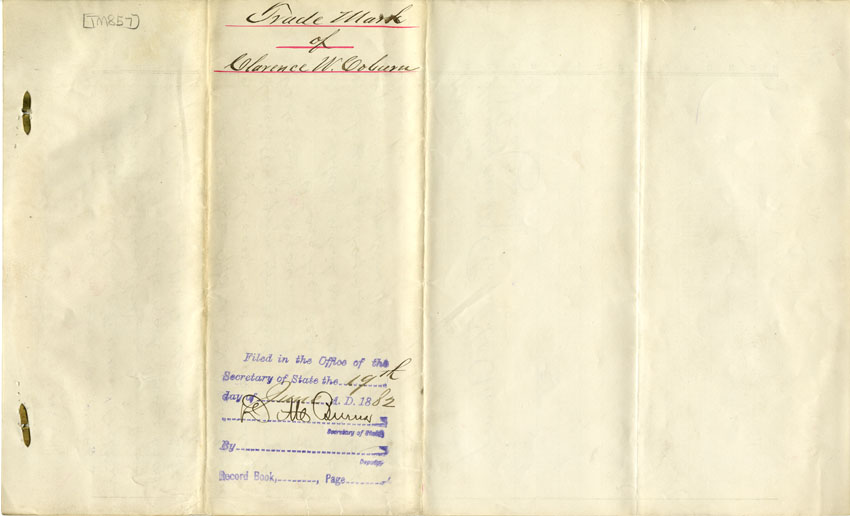 [TM857]
Trade Mark
of
Clarence W. Coburn
Filed in the Office of the
Secretary of State the 19th
day of June A. D. 1882
D M Burns
Secretary of State
By
Deputy
Record Book, , Page